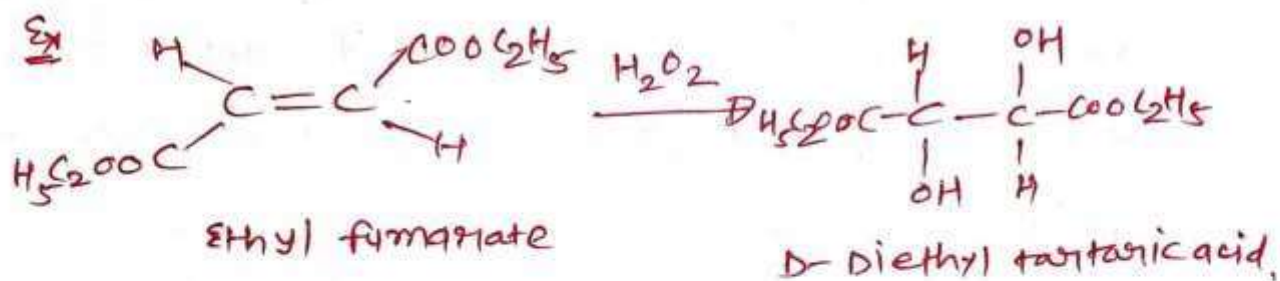 Ex
H COOC2H5
C=C
H5C2OOC H
H2O2
H OH
H5C2OOC-C-C-COOC2H5
OH H
Ethyl fumarate
D-Diethyl tartaric acid,